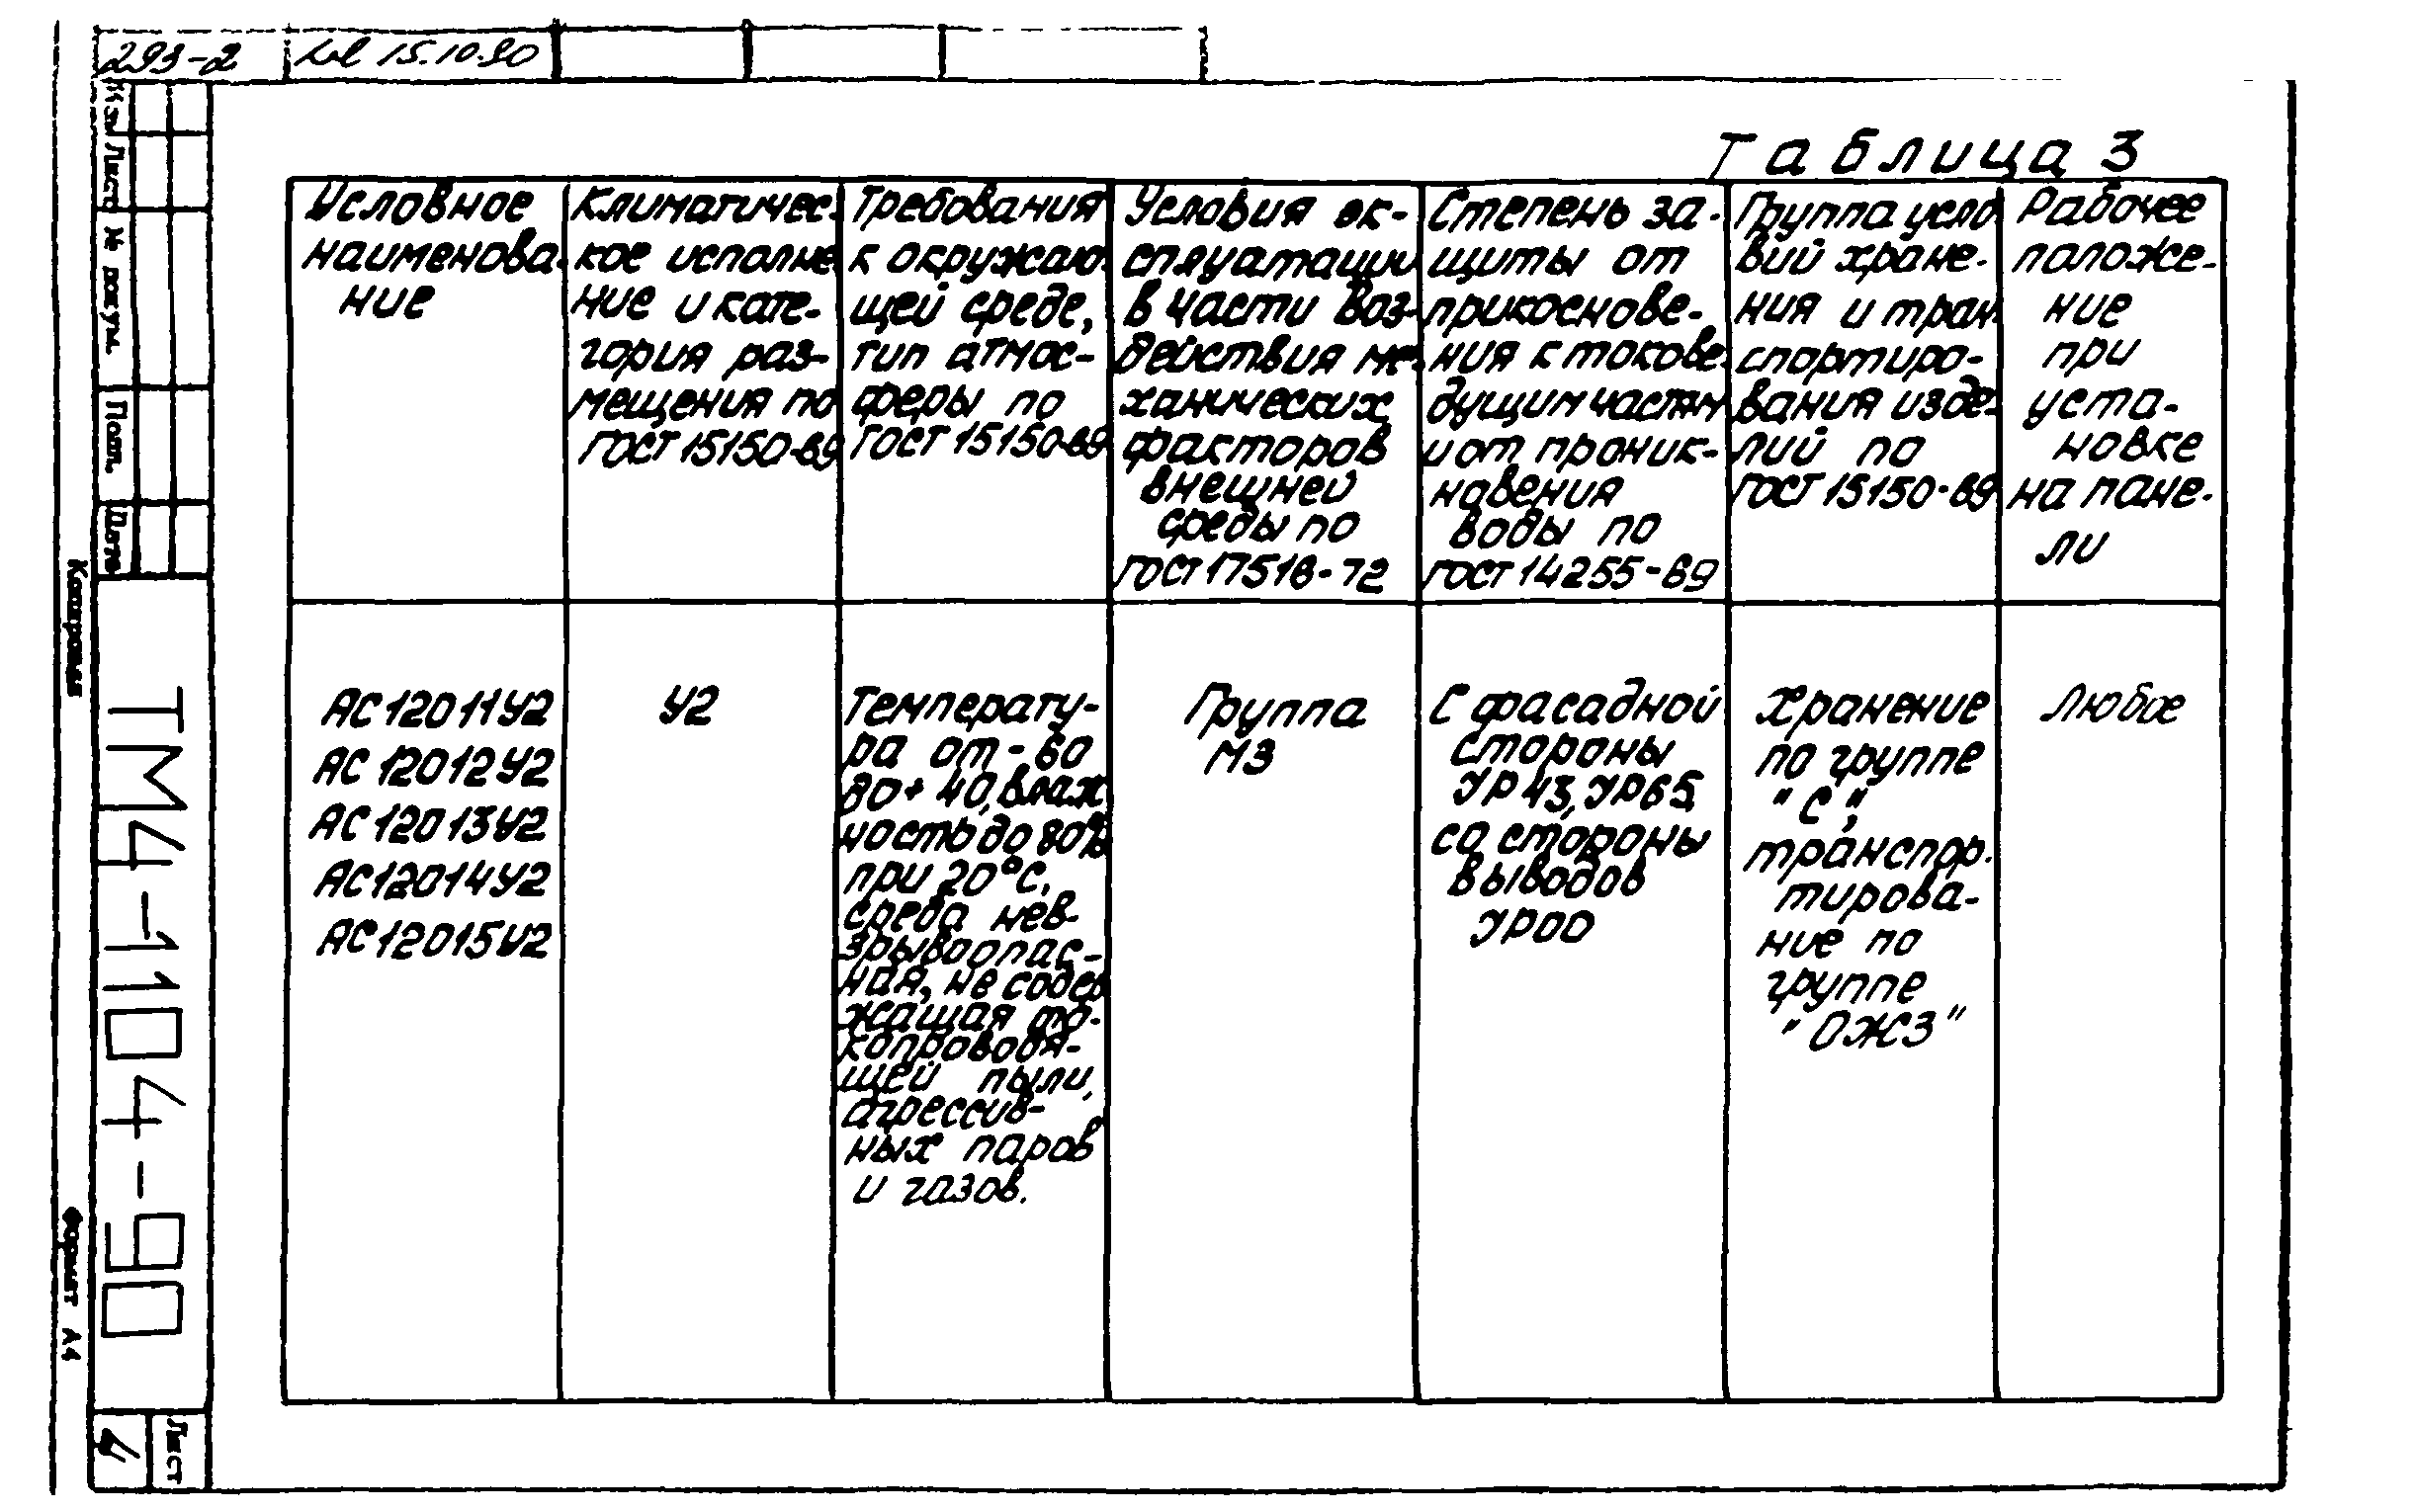 293-2 15.10.90
Таблица 3
Условное
наименова-
ние
Климатичес-
кое исполне
ние и кате-
гория раз-
мещения по
ГОСТ 15150-69
Требования
к окружаю-
щей среде,
тип атмос-
феры по
ГОСТ 15150-69
Условия эк-
сплуатации
в части воз-
действия ме-
ханических
факторов
внешней
среды по
ГОСТ 17516-72
Степень за-
щиты от
прикоснове-
ния к токове-
дущим частям
и от проник-
новения
воды по
ГОСТ 14255-69
Группа усло
вий хране-
ния и тран
спортиро-
вания изде-
лий по
ГОСТ 15150-69
Рабочее
положе-
ние
при
уста-
новке
на пане-
ли
АС12011У2
АС12012У2
АС12013У2
АС12014У2
АС12015У2
У2
Температу-
ра от -60
до + 40, влаж
ность до 80%
при 20°С,
среда нев-
зрывоопас-
ная, не содер
жащая то-
копроводя-
щей пыли,
агрессив-
ных паров
и газов.
Группа
М3
С фасадной
стороны
УР43, УР65
со стороны
выводов
УР00
Хранение
по группе
"С",
транспор-
тирова-
ние по
группе
"ОЖ3"
Любое
Изм
Лист
№ докум.
Подп.
Дата
ТМ4-1104-90
Лист
4
Копировал
Формат А4